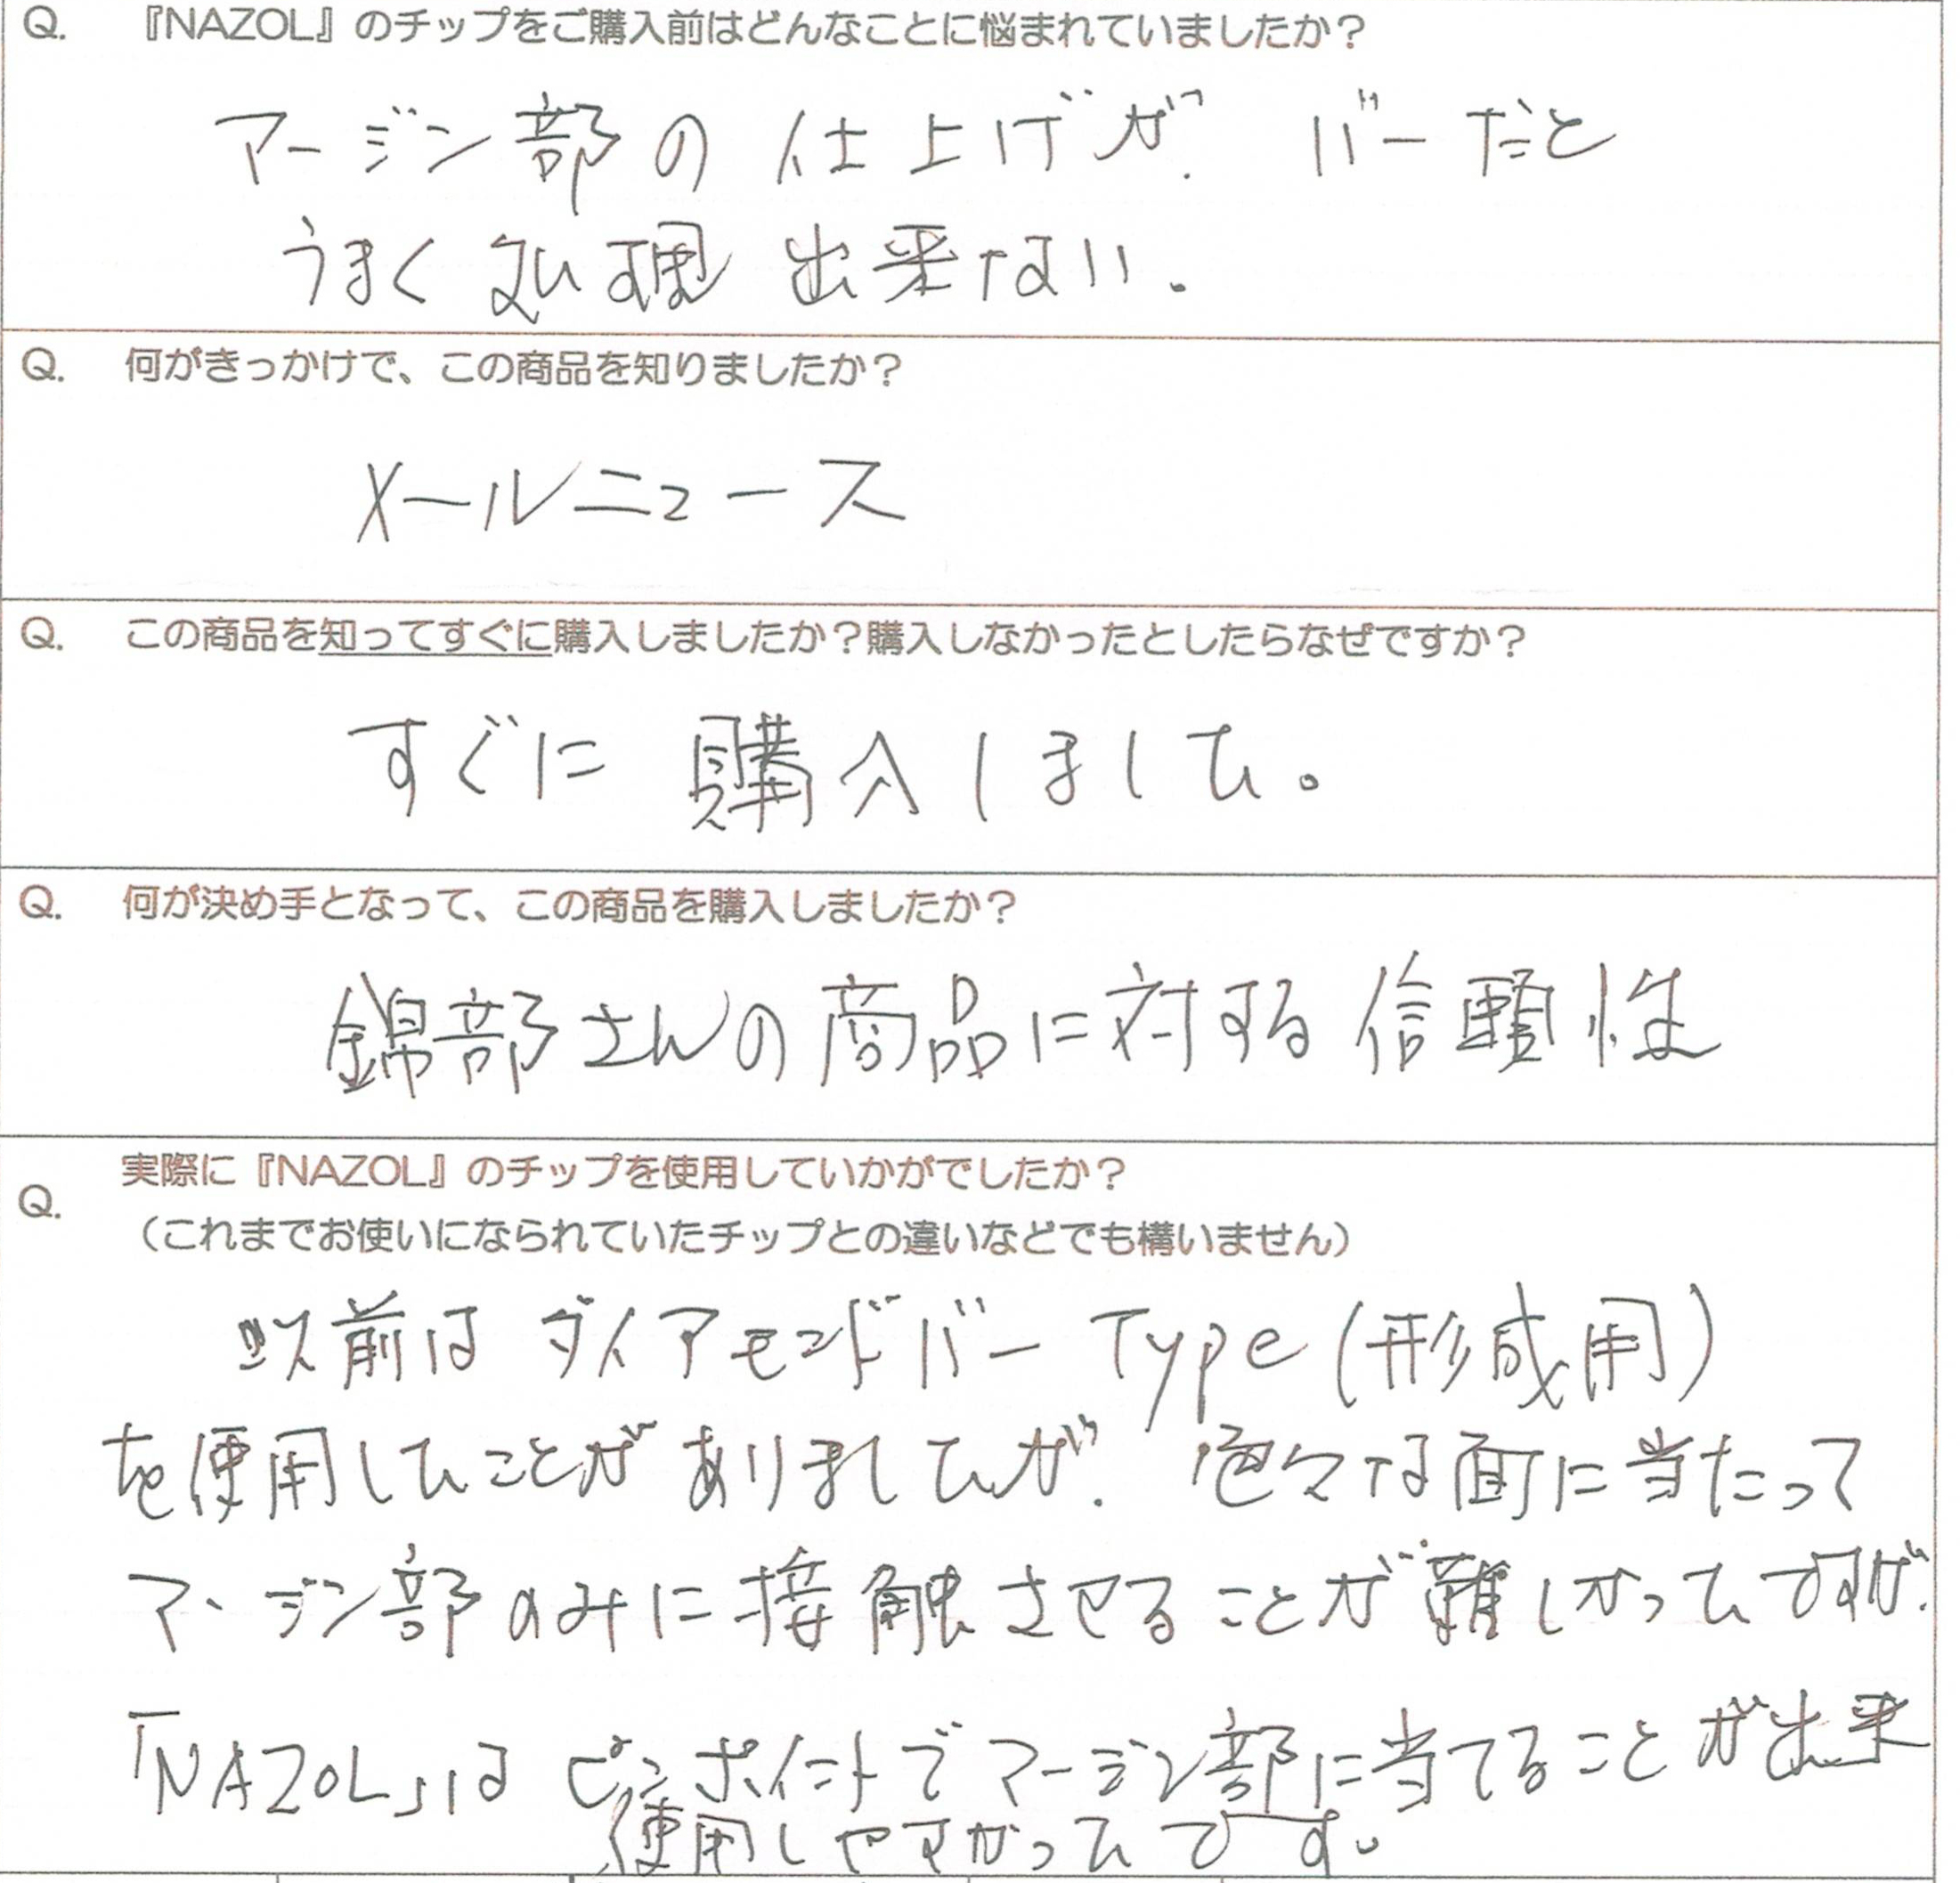 Q. 『NAZOL』のチップをご購入前はどんなことに悩まれていましたか？
マージン部の仕上げが、バーだと
うまく処理出来ない。
Q. 何がきっかけで、この商品を知りましたか？
メールニュース
Q. この商品を知ってすぐに購入しましたか？購入しなかったとしたらなぜですか？
すぐに購入しました。
Q. 何が決め手となって、この商品を購入しましたか？
錦部さんの商品に対する信頼性
Q. 実際に『NAZOL』のチップを使用していかがでしたか？
（これまでお使いになられていたチップとの違いなどでも構いません）
以前はダイアモンドバーType(形成用)
を使用したことがありましたが、色々な面に当たって
マージン部のみに接触させることが難しかったですが、
「NAZOL」はピンポイントでマージン部に当てることが出来
使用しやすかったです。